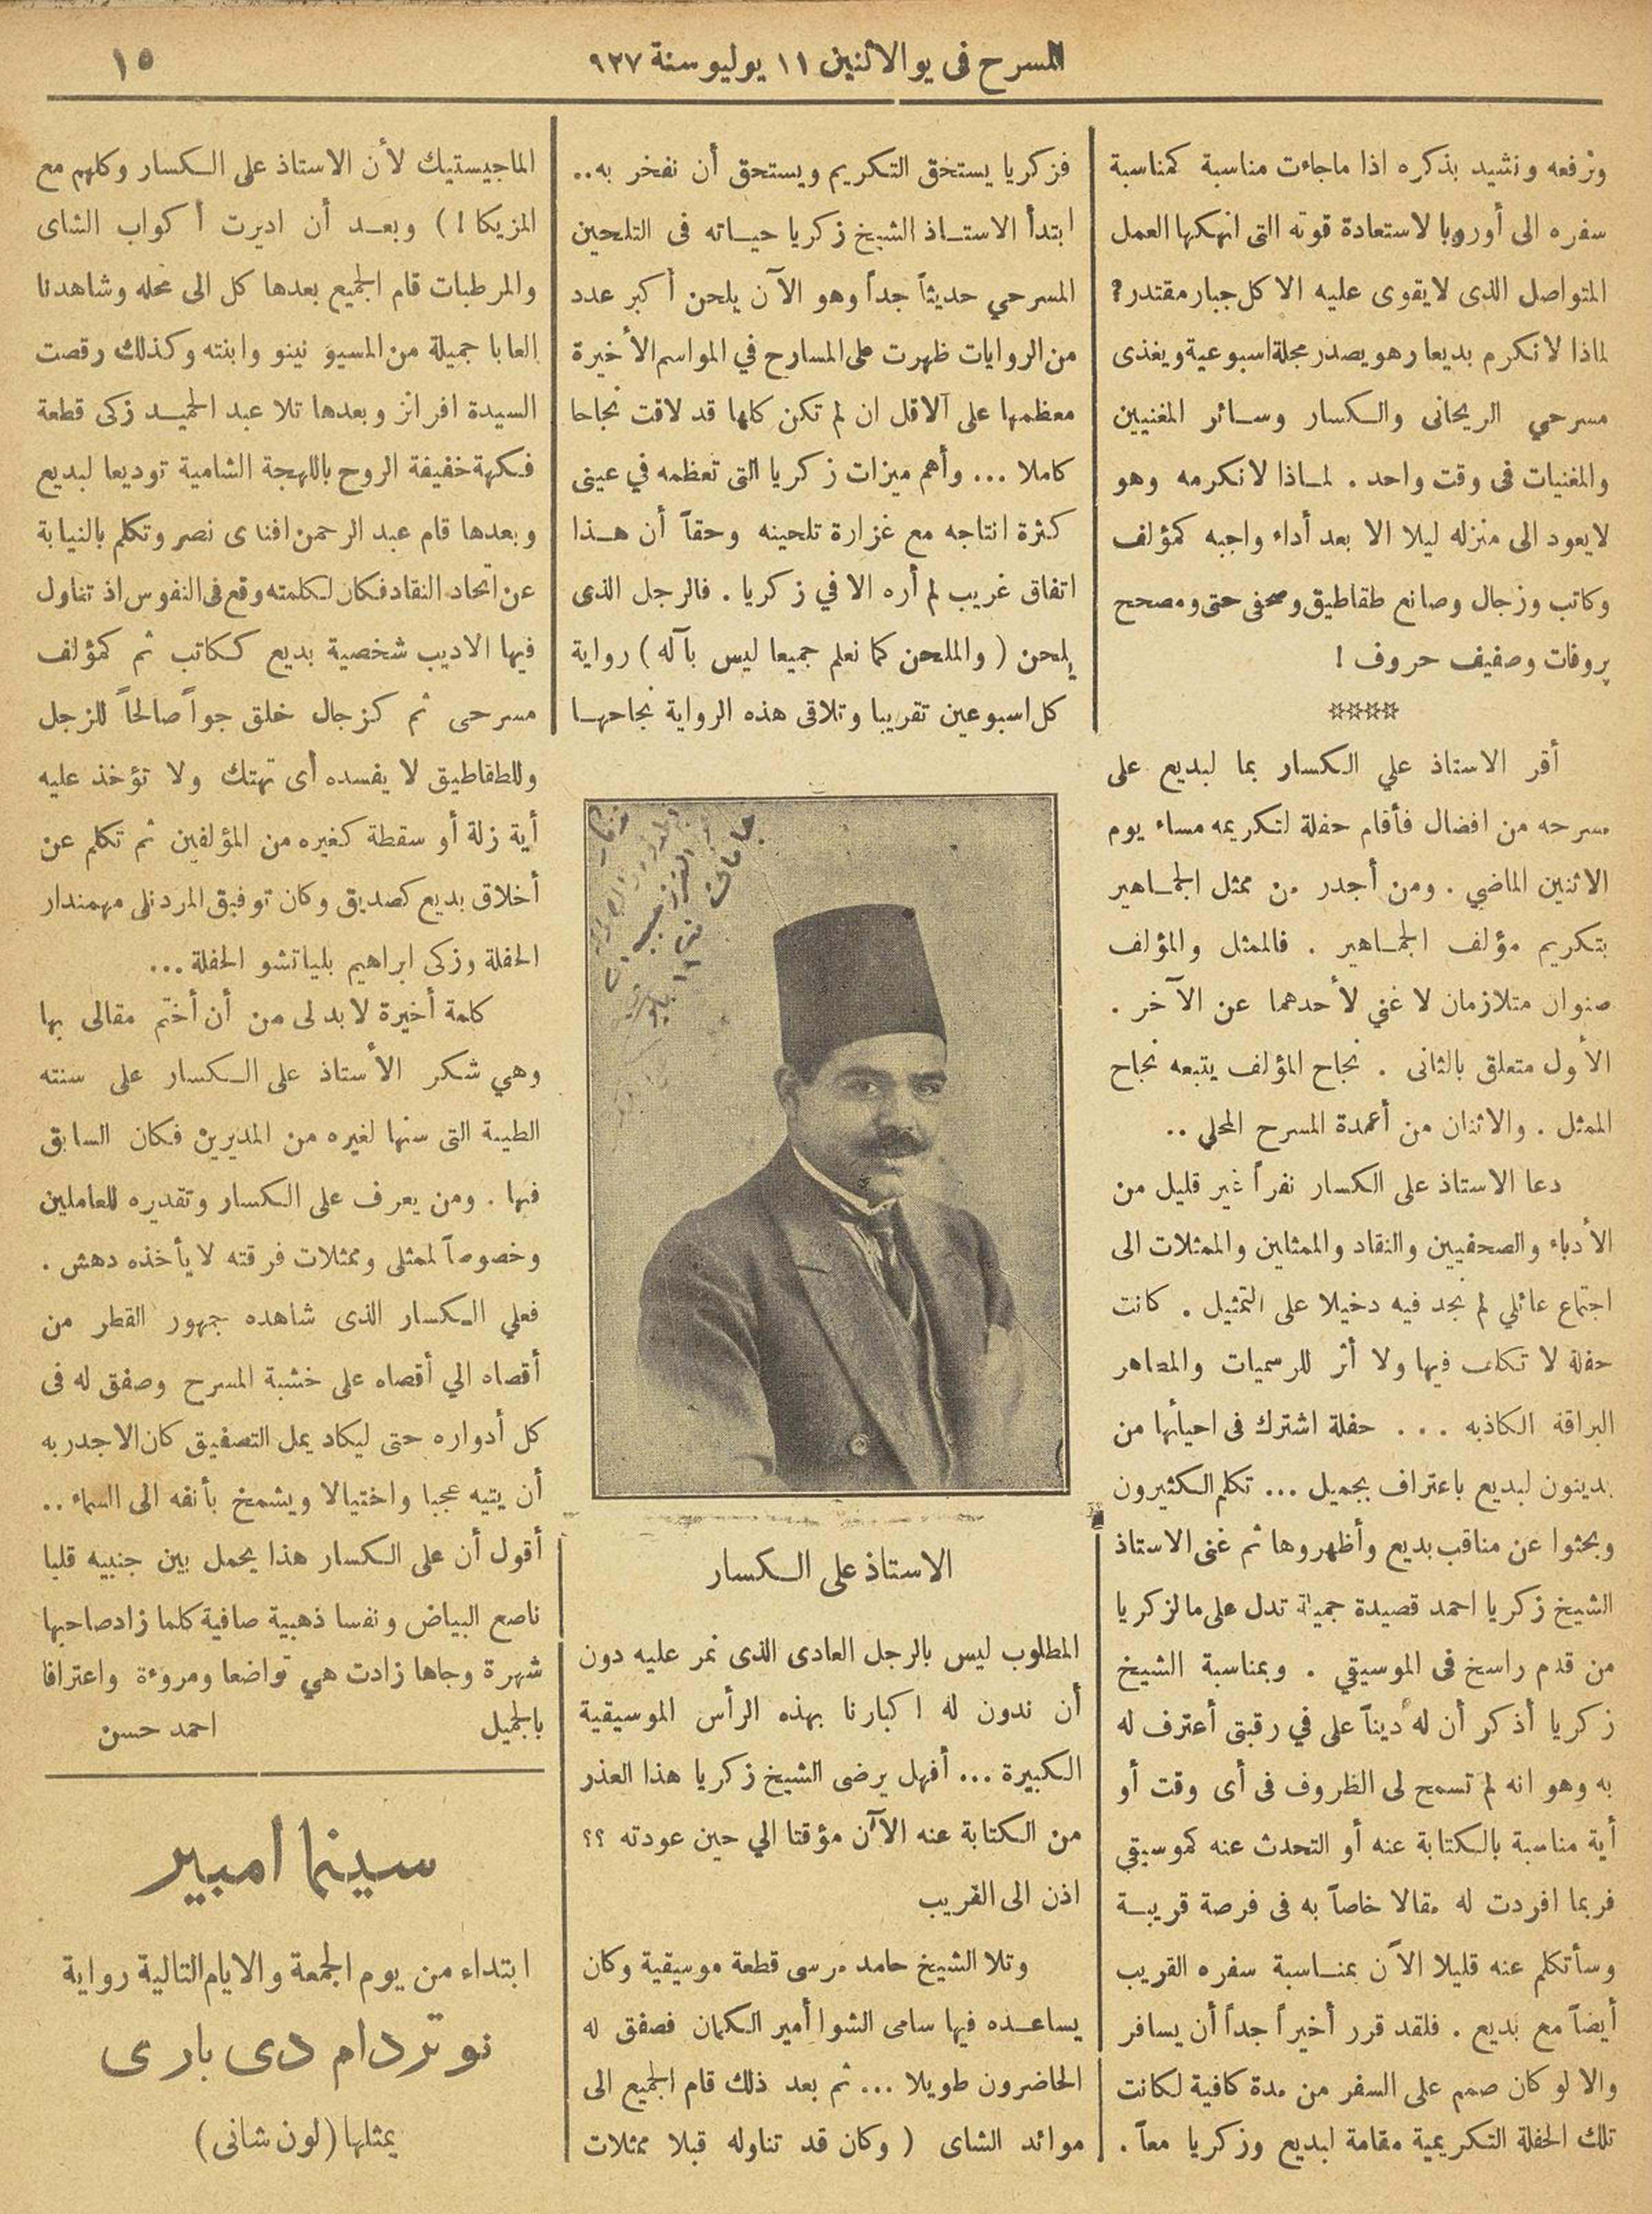 المسرح فى يو الاثنين ١١ يوليو سنة ٩٢٧
١٥
ونرفعه ونشيد بذكره اذا ماجاءت مناسبة كمناسبة
سفره الى أوروبا لاستعادة قوته التى انهكها العمل
المتواصل الذى لايقوى عليه الا كل جبار مقتدر؟
لماذا لانكرم بديعا وهو يصدر مجلة اسبوعية ويغذى
مسرحي الريحانى والكسار وسائر المغنيين
والمغنيات فى وقت واحد . لماذا لانكرمه وهو
لايعود الى منزله ليلا الا بعد أداء واجبه كمؤلف
وكاتب وزجال وصانع طقاطيق وصحفى حتى ومصحح
بروفات وصفيف حروف !
****
أقر الاستاذ علي الكسار بما لبديع على
مسرحه من افضال فأقام حفلة لتكريمه مساء يوم
الاثنين الماضي . ومن أجدر من ممثل الجماهير
بتكريم مؤلف الجماهير . فالممثل والمؤلف
صنوان متلازمان لا غني لأحدهما عن الآخر .
الأول متعلق بالثانى . نجاح المؤلف يتبعه نجاح
الممثل . والاثنان من أعمدة المسرح المحلي ..
دعا الاستاذ على الكسار نفراً غير قليل من
الأدباء والصحفيين والنقاد والممثلين والممثلات الى
اجتماع عائلي لم نجد فيه دخيلا على التمثيل . كانت
حفلة لا تكلف فيها ولا أثر للرسميات والمظاهر
البراقة الكاذبه ... حفلة اشترك فى احيائها من
يدينون لبديع باعتراف بجميل ... تكلم الكثيرون
وبحثوا عن مناقب بديع وأظهروها ثم غنى الاستاذ
الشيخ زكريا احمد قصيدة جميلة تدل على مالزكريا
من قدم راسخ فى الموسيقي . وبمناسبة الشيخ
زكريا أذكر أن له ديناً على في رقبتى أعترف له
به وهو انه لم تسمح لى الظروف فى أى وقت أو
أية مناسبة بالكتابة عنه أو التحدث عنه كموسيقي
فربما افردت له مقالا خاصاً به فى فرصة قريبة
وسأتكلم عنه قليلا الآن بمناسبة سفره القريب
أيضاً مع بديع . فلقد قرر أخيراً جداً أن يسافر
والا لو كان صمم على السفر من مدة كافية لكانت
تلك الحفلة التكريمية مقامة لبديع وزكريا معاً .
فزكريا يستحق التكريم ويستحق أن نفخر به ..
ابتدأ الاستاذ الشيخ زكريا حياته فى التلحين
المسرحي حديثاً جداً وهو الآن يلحن أكبر عدد
من الروايات ظهرت على المسارح في المواسم الأخيرة
معظمها على الاقل ان لم تكن كلها قد لاقت نجاحا
كاملا ... وأهم ميزات زكريا التى تعظمه في عينى
كثرة انتاجه مع غزارة تلحينه وحقاً أن هذا
اتفاق غريب لم أره الا في زكريا . فالرجل الذى
يلحن ( والملحن كما نعلم جميعا ليس بآله ) رواية
كل اسبوعين تقريبا وتلاقى هذه الرواية نجاحها
الاستاذ على الكسار
المطلوب ليس بالرجل العادى الذى نمر عليه دون
أن ندون له اكبارنا بهذه الرأس الموسيقية
الكبيرة ... أفهل يرضى الشيخ زكريا هذا العذر
من الكتابة عنه الآن مؤقتا الي حين عودته ؟؟
اذن الى القريب
وتلا الشيخ حامد مرسى قطعة موسيقية وكان
يساعده فيها سامى الشوا أمير الكمان فصفق له
الحاضرون طويلا ... ثم بعد ذلك قام الجميع الى
موائد الشاى ( وكان قد تناوله قبلا ممثلات
الماجيستيك لأن الاستاذ على الكسار وكلهم مع
المزيكا ! ) وبعد أن اديرت أكواب الشاى
والمرطبات قام الجميع بعدها كل الى محله وشاهدنا
العابا جميلة من المسيو نينو وابنته وكذلك رقصت
السيدة افرانز وبعدها تلا عبد الحميد زكى قطعة
فكهة خفيفة الروح باللهجة الشامية توديعا لبديع
وبعدها قام عبد الرحمن افندى نصر وتكلم بالنيابة
عن اتحاد النقاد فكان لكلمته وقع فى النفوس اذ تناول
فيها الاديب شخصية بديع ككاتب ثم كمؤلف
مسرحى ثم كزجال خلق جواً صالحاً للزجل
وللطقاطيق لا يفسده أى تهتك ولا تؤخذ عليه
أية زلة أو سقطة كغيره من المؤلفين ثم تكلم عن
أخلاق بديع كصديق وكان توفيق المردنلى مهمندار
الحفلة وزكى ابراهيم بلياتشو الحفلة ...
كلمة أخيرة لابد لى من أن أختم مقالى بها
وهي شكر الأستاذ على الكسار على سنته
الطيبة التى سنها لغيره من المديرين فكان السابق
فيها . ومن يعرف على الكسار وتقديره للعاملين
وخصوصاً لممثلى وممثلات فرقته لا يأخذه دهش .
فعلي الكسار الذى شاهده جمهور القطر من
أقصاه الي أقصاه على خشبة المسرح وصفق له فى
كل أدواره حتى ليكاد يمل التصفيق كان الاجدر به
أن يتيه عجبا واختيالا ويشمخ بأنفه الى السماء ..
أقول أن على الكسار هذا يحمل بين جنبيه قلبا
ناصع البياض ونفسا ذهبية صافية كلما زاد صاحبها
شهرة وجاها زادت هي تواضعا ومروءة واعترافا
بالجميل احمد حسن
سينما امبير
ابتداء من يوم الجمعة والايام التالية رواية
نوتردام دى بارى
يمثلها ( لون شانى )